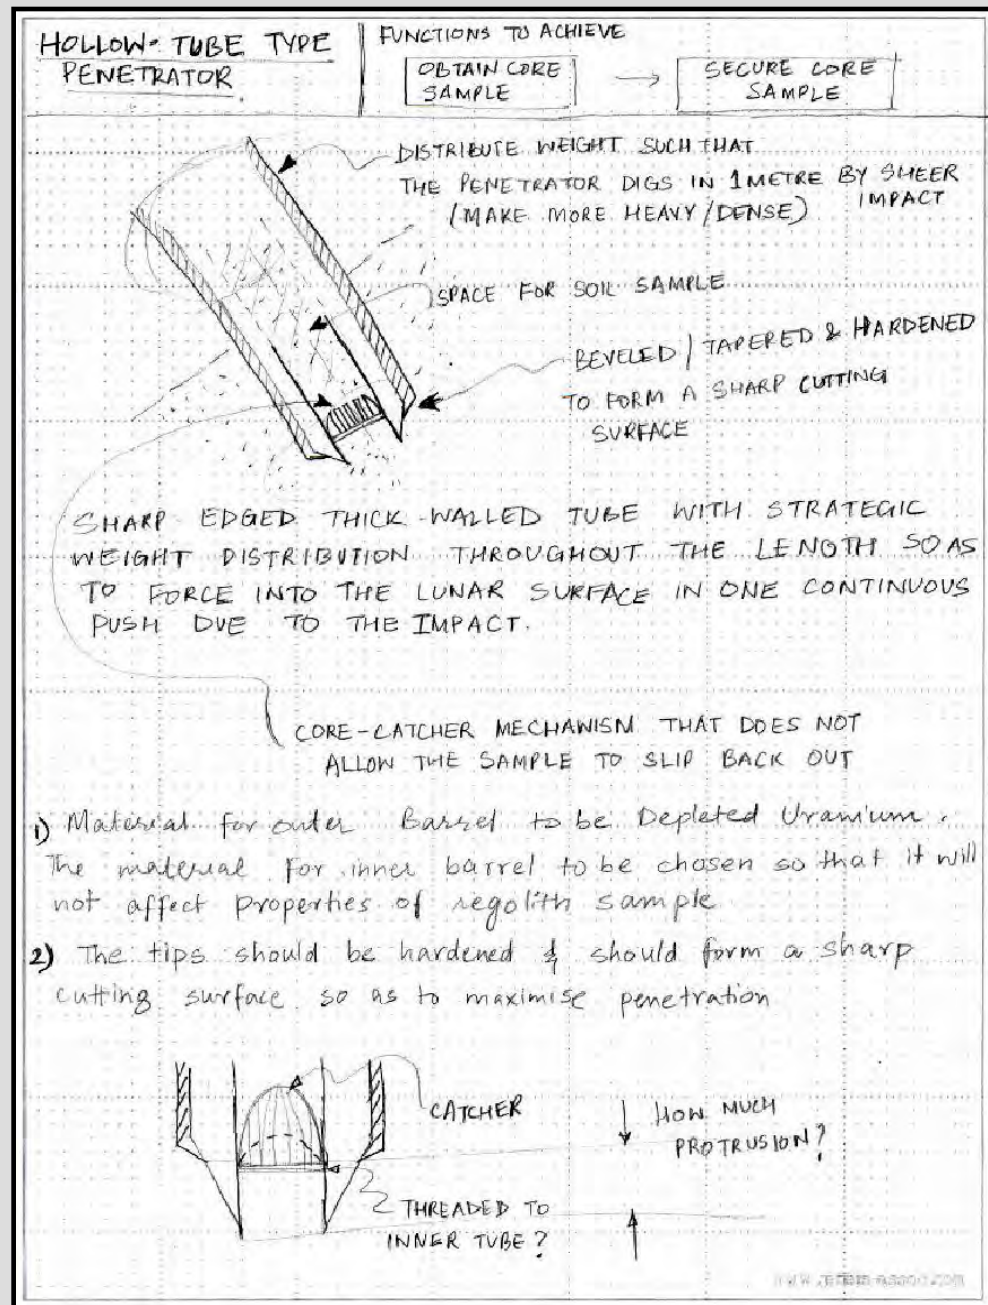 HOLLOW-TUBE TYPE
PENETRATOR
FUNCTIONS TO ACHIEVE
OBTAIN CORE
SAMPLE
SECURE CORE
SAMPLE
DISTRIBUTE WEIGHT SUCH THAT
THE PENETRATOR DIGS IN 1 METRE BY SHEER
IMPACT
(MAKE MORE HEAVY/DENSE)
SPACE FOR SOIL SAMPLE
BEVELED / TAPERED & HARDENED
TO FORM A SHARP CUTTING
SURFACE
SHARP EDGED THICK-WALLED TUBE WITH STRATEGIC
WEIGHT DISTRIBUTION THROUGHOUT THE LENGTH SO AS
TO FORCE INTO THE LUNAR SURFACE IN ONE CONTINUOUS
PUSH DUE TO THE IMPACT.
CORE-CATCHER MECHANISM THAT DOES NOT
ALLOW THE SAMPLE TO SLIP BACK OUT
1) Material for outer Barrel to be Depleted Uranium.
The material for inner barrel to be chosen so that it will
not affect properties of regolith sample
2) The tips should be hardened & should form a sharp
cutting surface so as to maximise penetration
CATCHER
HOW MUCH
PROTRUSION?
THREADED TO
INNER TUBE?